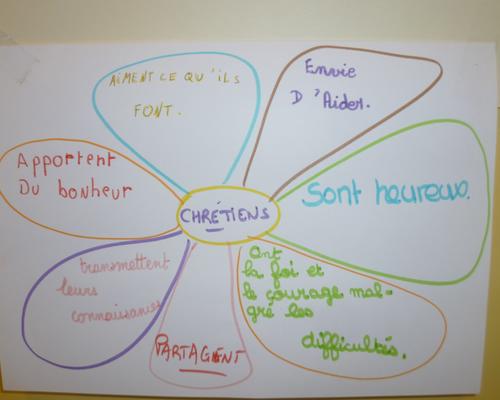 AiMENT CE QU'iLS
FONT.
Envie
D'Aider.
Sont heureux.
Ont
la foi et
le courage mal-
gré les
difficultés.
PARTAGENT
transmettent
leurs
connaissances
Apportent
Du bonheur
CHRÉTIENS